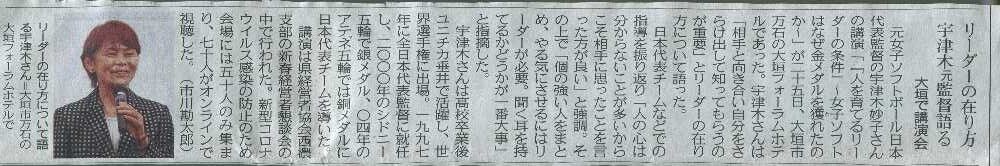 リーダーの在り方
宇津木元監督語る
大垣で講演会
元女子ソフトボール日本
代表監督の宇津木妙子さん
の講演「人を育てるリー
ダーの条件~女子ソフト
はなぜ金メダルを獲れたの
か~」が二十五日、大垣市
万石の大垣フォーラムホテ
ルであった。宇津木さんは
「相手と向き合い自分をさ
らけ出して知ってもらうの
が重要」とリーダーの在り
方について語った。
日本代表チームなどでの
指導を振り返り「人の心は
分からないことが多いから
こそ相手に思ったことを言
った方が良い」と強調。そ
の上で「個の強い人をまと
め、やる気にさせるにはリ
ーダーが必要。聞く耳を持
てるかどうかが一番大事」
と指摘した。
宇津木さんは高校卒業後
ユニチカ垂井で活躍し、世
界選手権に出場。一九九七
年に全日本代表監督に就任
し、二〇〇〇年のシドニー
五輪で銀メダル、〇四年の
アテネ五輪では銅メダルに
日本代表チームを導いた。
講演は県経営者協会西濃
支部の新春経営者懇談会の
中で行われた。新型コロナ
ウイルス感染の防止のため
会場には五十人のみ集ま
り、七十人がオンラインで
視聴した。（市川勘太郎）
リーダーの在り方について語
る宇津木さん＝大垣市万石の
大垣フォーラムホテルで